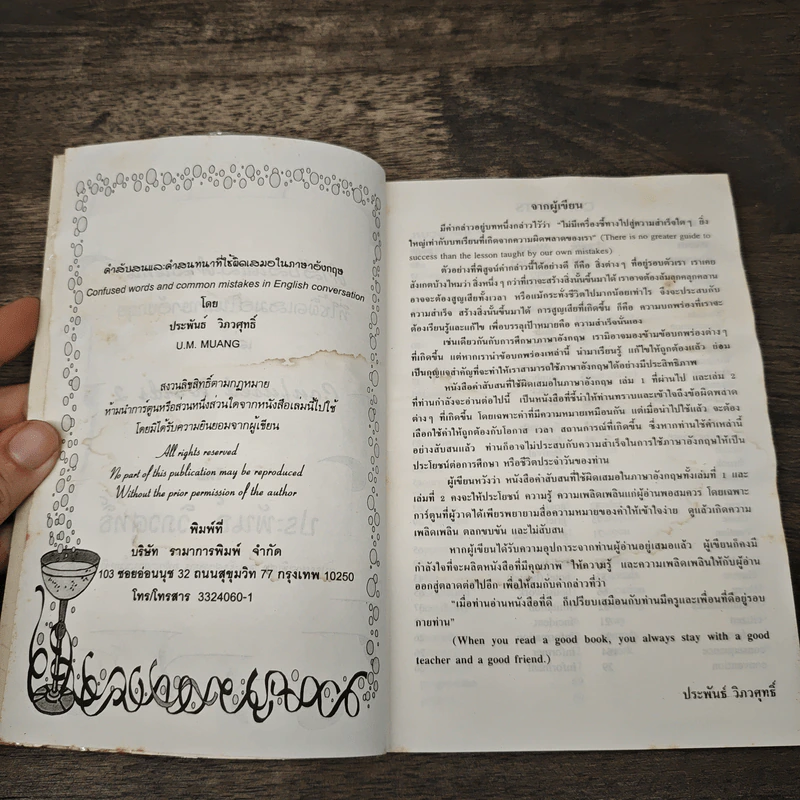 คำสับสนและคำสนทนาที่ใช้ผิดเสมอในภาษาอังกฤษ
Confused words and common mistakes in English conversation
โดย
ประพันธ์ วิภวศุทธิ์
U.M. MUANG
สงวนลิขสิทธิ์ตามกฎหมาย
ห้ามนำการ์ตูนหรือส่วนหนึ่งส่วนใดจากหนังสือเล่มนี้ไปใช้
โดยมิได้รับความยินยอมจากผู้เขียน
All rights reserved
No part of this publication may be reproduced
Without the prior permission of the author
พิมพ์ที่
บริษัท รามาการพิมพ์ จำกัด
103 ซอยอ่อนนุช 32 ถนนสุขุมวิท 77 กรุงเทพ 10250
โทร/โทรสาร 3324060-1
จากผู้เขียน
มีคำกล่าวอยู่บทหนึ่งกล่าวไว้ว่า "ไม่มีเครื่องชี้ทางไปสู่ความสำเร็จใดๆ ยิ่ง
ใหญ่เท่ากับบทเรียนที่เกิดจากความผิดพลาดของเรา" (There is no greater guide to
success than the lesson taught by our own mistakes)
ตัวอย่างที่พิสูจน์คำกล่าวนี้ได้อย่างดี ก็คือ สิ่งต่างๆ ที่อยู่รอบตัวเรา เราเคย
สังเกตบ้างไหมว่า สิ่งหนึ่งๆ กว่าที่เราจะสร้างสิ่งนั้นขึ้นมาได้ เราอาจต้องล้มลุกคลุกคลาน
อาจจะต้องสูญเสียทั้งเวลา หรือแม้กระทั่งชีวิตไปมากน้อยเท่าไร จึงจะประสบกับ
ความสำเร็จ สร้างสิ่งนั้นขึ้นมาได้ การสูญเสียที่เกิดขึ้น ก็คือ ความบกพร่องที่เราจะ
ต้องเรียนรู้และแก้ไข เพื่อบรรลุเป้าหมายคือ ความสำเร็จนั้นเอง
เช่นเดียวกันกับการศึกษาภาษาอังกฤษ เรามิอาจมองข้ามข้อบกพร่องต่างๆ
ที่เกิดขึ้น แต่หากเรานำข้อบกพร่องเหล่านี้ นำมาเรียนรู้ แก้ไขให้ถูกต้องแล้ว ย่อม
เป็นกุญแจสำคัญที่จะทำให้เราสามารถใช้ภาษาอังกฤษได้อย่างมีประสิทธิภาพ
หนังสือคำสับสนที่ใช้ผิดเสมอในภาษาอังกฤษ เล่ม 1 ที่ผ่านไป และเล่ม 2
ที่ท่านกำลังจะอ่านต่อไปนี้ เป็นหนังสือที่ชี้นำให้ท่านทราบและเข้าใจถึงข้อผิดพลาด
ต่างๆ ที่เกิดขึ้น โดยเฉพาะคำที่มีความหมายเหมือนกัน แต่เมื่อนำไปใช้แล้ว จะต้อง
เลือกใช้คำให้ถูกต้องกับโอกาส เวลา สถานการณ์ที่เกิดขึ้น ซึ่งหากท่านใช้คำเหล่านี้
อย่างสับสนแล้ว ท่านก็อาจไม่ประสบกับความสำเร็จในการใช้ภาษาอังกฤษให้เป็น
ประโยชน์ต่อการศึกษา หรือชีวิตประจำวันของท่าน
ผู้เขียนหวังว่า หนังสือคำสับสนที่ใช้ผิดเสมอในภาษาอังกฤษทั้งเล่มที่ 1 และ
เล่มที่ 2 คงจะให้ประโยชน์ ความรู้ ความเพลิดเพลินแก่ผู้อ่านพอสมควร โดยเฉพาะ
การ์ตูนที่ผู้วาดได้เพียรพยายามสื่อความหมายของคำให้เข้าใจง่าย ดูแล้วเกิดความ
เพลิดเพลิน ตลกขบขัน และไม่สับสน
หากผู้เขียนได้รับความอุปการะจากท่านผู้อ่านอยู่เสมอแล้ว ผู้เขียนก็คงมี
กำลังใจที่จะผลิตหนังสือที่มีคุณภาพ ให้ความรู้ และความเพลิดเพลินให้กับผู้อ่าน
ออกสู่ตลาดต่อไปอีก เพื่อให้สมกับคำกล่าวที่ว่า
"เมื่อท่านอ่านหนังสือที่ดี ก็เปรียบเสมือนกับท่านมีครูและเพื่อนที่ดีอยู่รอบ
กายท่าน"
(When you read a good book, you always stay with a good
teacher and a good friend.)
ประพันธ์ วิภวศุทธิ์